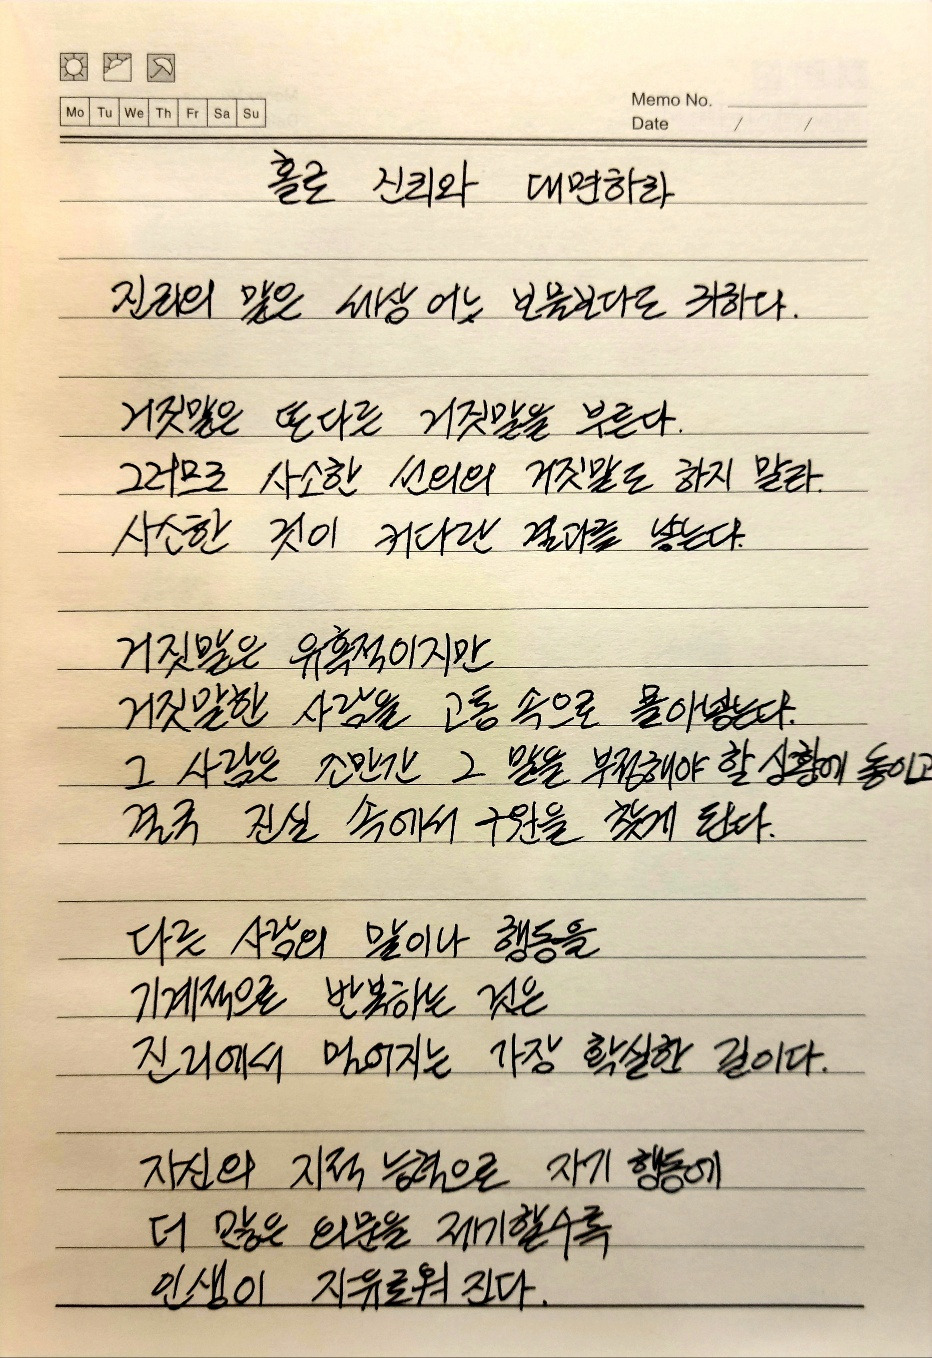 Mo Tu We Th Fr Sa Su
Memo No.
Date / /
홀로 진리와 대면하라
진리의 말은 세상 어느 보물보다도 귀하다.
거짓말은 또다른 거짓말을 부른다.
그러므로 사소한 선의의 거짓말도 하지 말라.
사소한 것이 커다란 결과를 낳는다.
거짓말은 유혹적이지만
거짓말한 사람을 고통 속으로 몰아넣는다.
그 사람은 조만간 그 말을 부정해야 할 상황에 놓이고
결국 진실 속에서 구원을 찾게 된다.
다른 사람의 말이나 행동을
기계적으로 반복하는 것은
진리에서 멀어지는 가장 확실한 길이다.
자신의 지적 능력으로 자기 행동에
더 많은 의문을 제기할수록
인생이 자유로워 진다.